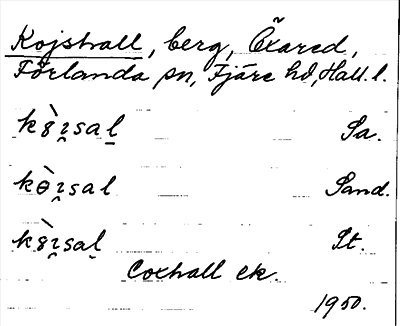 Kojshall, berg, Öxared,
Förlanda sn, Fjäre hd, Hall. l.
kȣ̀ı̯saḷ Sa.
kɵ̀ı̯sal Sand.
kȣ̀ı̯saḷ St.
Coxhall ek.
1950.